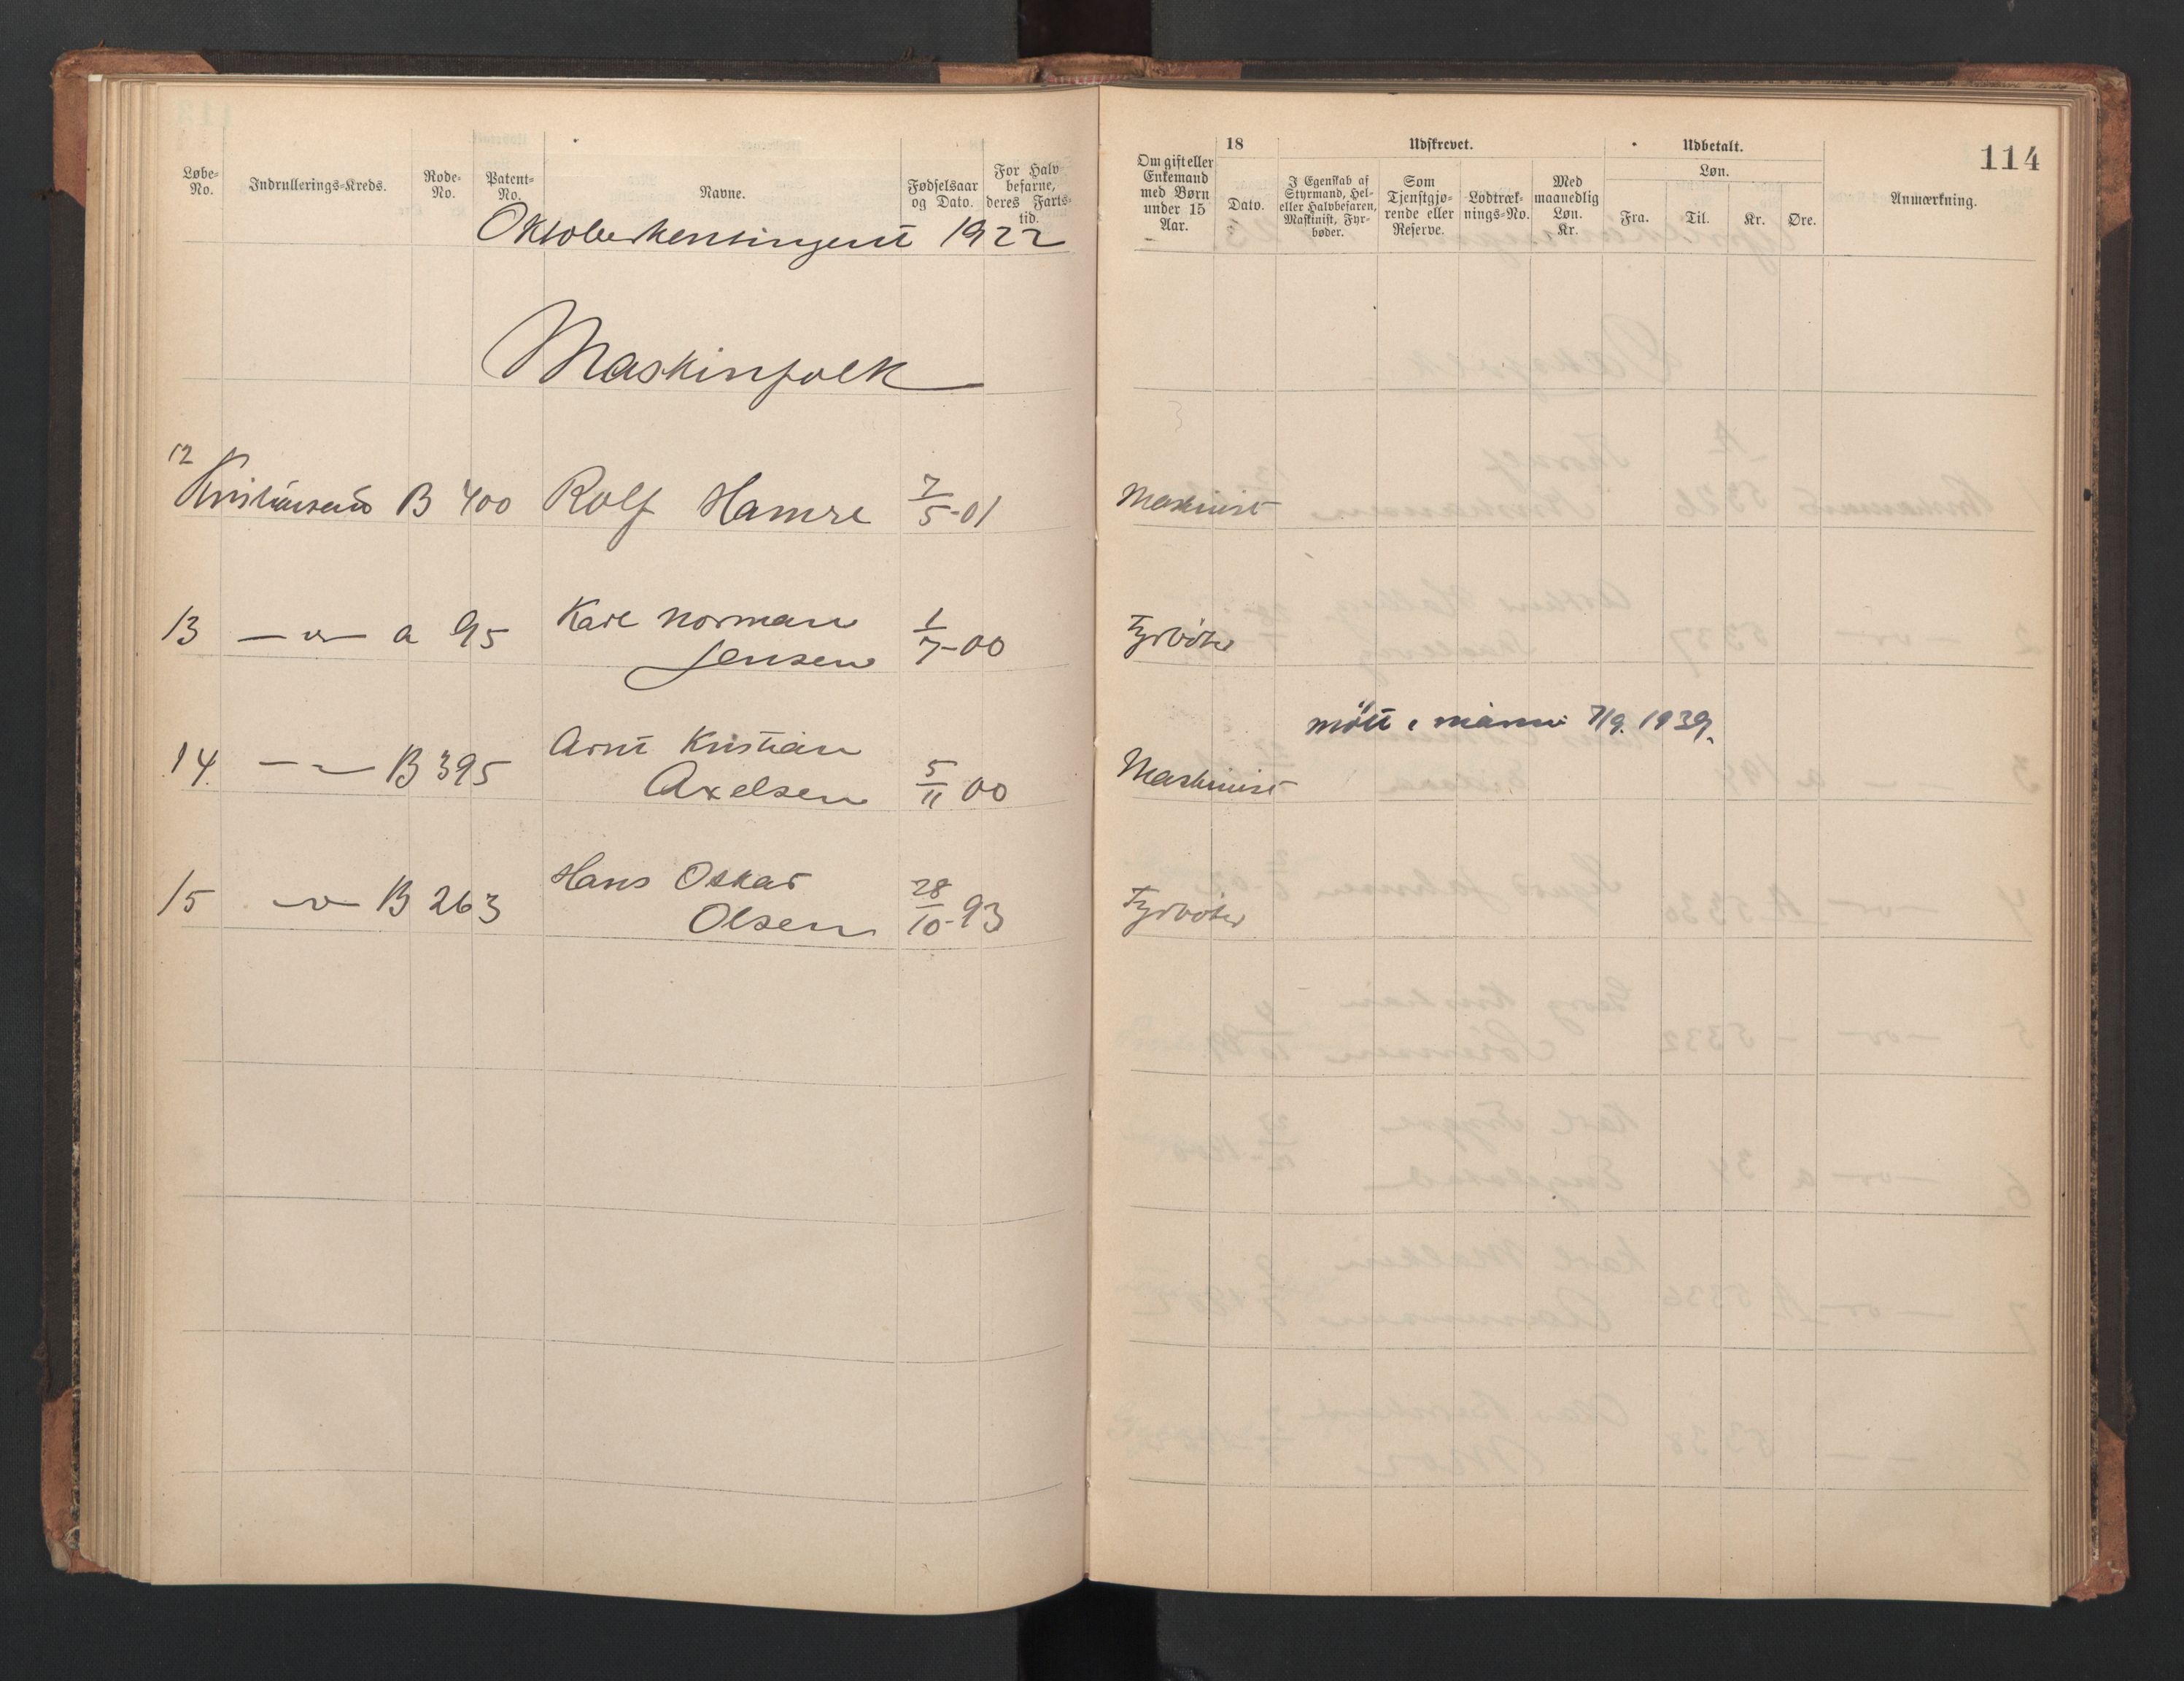 114
Løbe-No. Indrullerings-Kreds. Rode-No. Patent-No. Navne. Fødselsaar og Dato. For Halvbefarne, deres Farts-tid.
Om gift eller Enkemand med Børn under 15 Aar. 18 Dato. Udskrevet. I Egenskab af Styrmand, Hel- eller Halvbefaren, Maskinist, Fyrbøder. Som Tjenstgjørende eller Reserve. Lodtræknings-No. Med maanedlig Løn. Kr. Udbetalt. Løn. Fra. Til. Kr. Øre. Anmærkning.
Oktoberkontingent 1922
Maskinfolk
12 Kristiansand B 400 Rolf Hamre 7/5-01 Maskinist
13 — " — a 95 Karl Norman
Jensen 1/7-00 Fyrbøter
møtt i marinen 7/9. 1939.
14. — " — B 395 Arnt Kristian
Axelsen 5/11 00 Maskinist
15 — " — B 263 Hans Oskar
Olsen 28/10-93 Fyrbøter